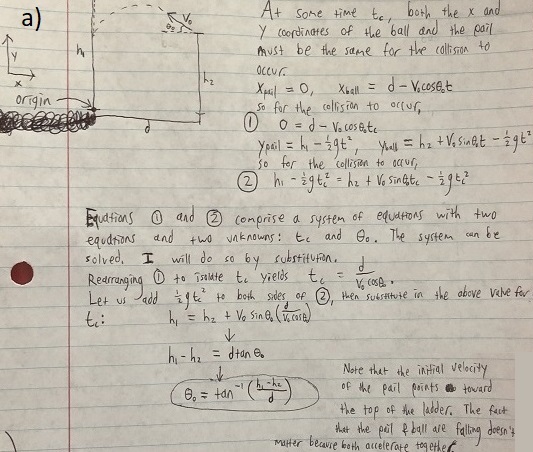 a)
At some time tc, both the x and
y coordinates of the ball and the pail
must be the same for the collision to
occur.
x_pail = 0, x_ball = d - V₀cosθ₀t
so for the collision to occur,
① 0 = d - V₀cosθ₀tc
y_pail = h₁ - ½gt², y_ball = h₂ + V₀sinθ₀t - ½gt²
so for the collision to occur,
② h₁ - ½gtc² = h₂ + V₀sinθ₀tc - ½gtc²
V₀
θ₀
h₁
h₂
y
x
origin
d
Equations ① and ② comprise a system of equations with two
equations and two unknowns: tc and θ₀. The system can be
solved. I will do so by substitution.
Rearranging ① to isolate tc yields tc = d/(V₀cosθ₀).
Let us add ½gtc² to both sides of ②, then substitute in the above value for
tc: h₁ = h₂ + V₀ sinθ₀(d/(V₀cosθ₀))
↓
h₁ - h₂ = d tan θ₀
↓
θ₀ = tan⁻¹((h₁-h₂)/d)
Note that the initial velocity
of the pail points toward
the top of the ladder. The fact
that the pail & ball are falling doesn't
matter because both accelerate together.